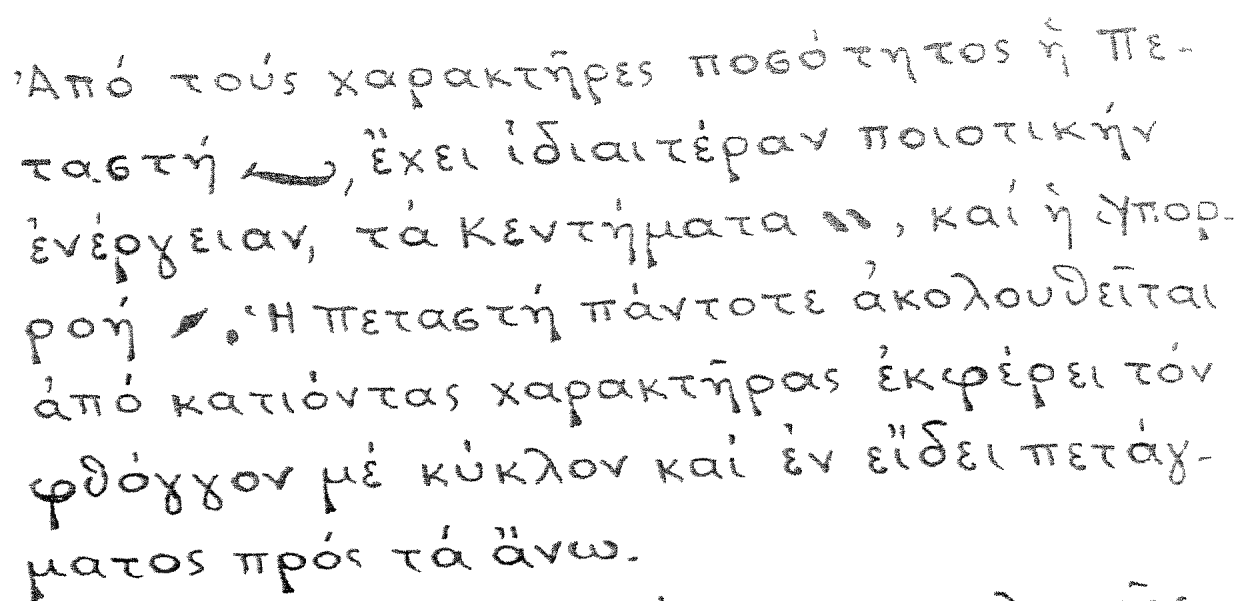 Ἀπό τούς χαρακτῆρες ποσότητος ἡ Πε-
ταστή, ἔχει ἰδιαιτέραν ποιοτικήν
ἐνέργειαν, τά Κεντήματα, καί ἡ Ὑπορ-
ροή. Ἡ Πεταστή πάντοτε ἀκολουθεῖται
ἀπό κατιόντας χαρακτῆρας ἐκφέρει τόν
φθόγγον μέ κύκλον καί ἐν εἴδει πετάγ-
ματος πρός τά ἄνω.